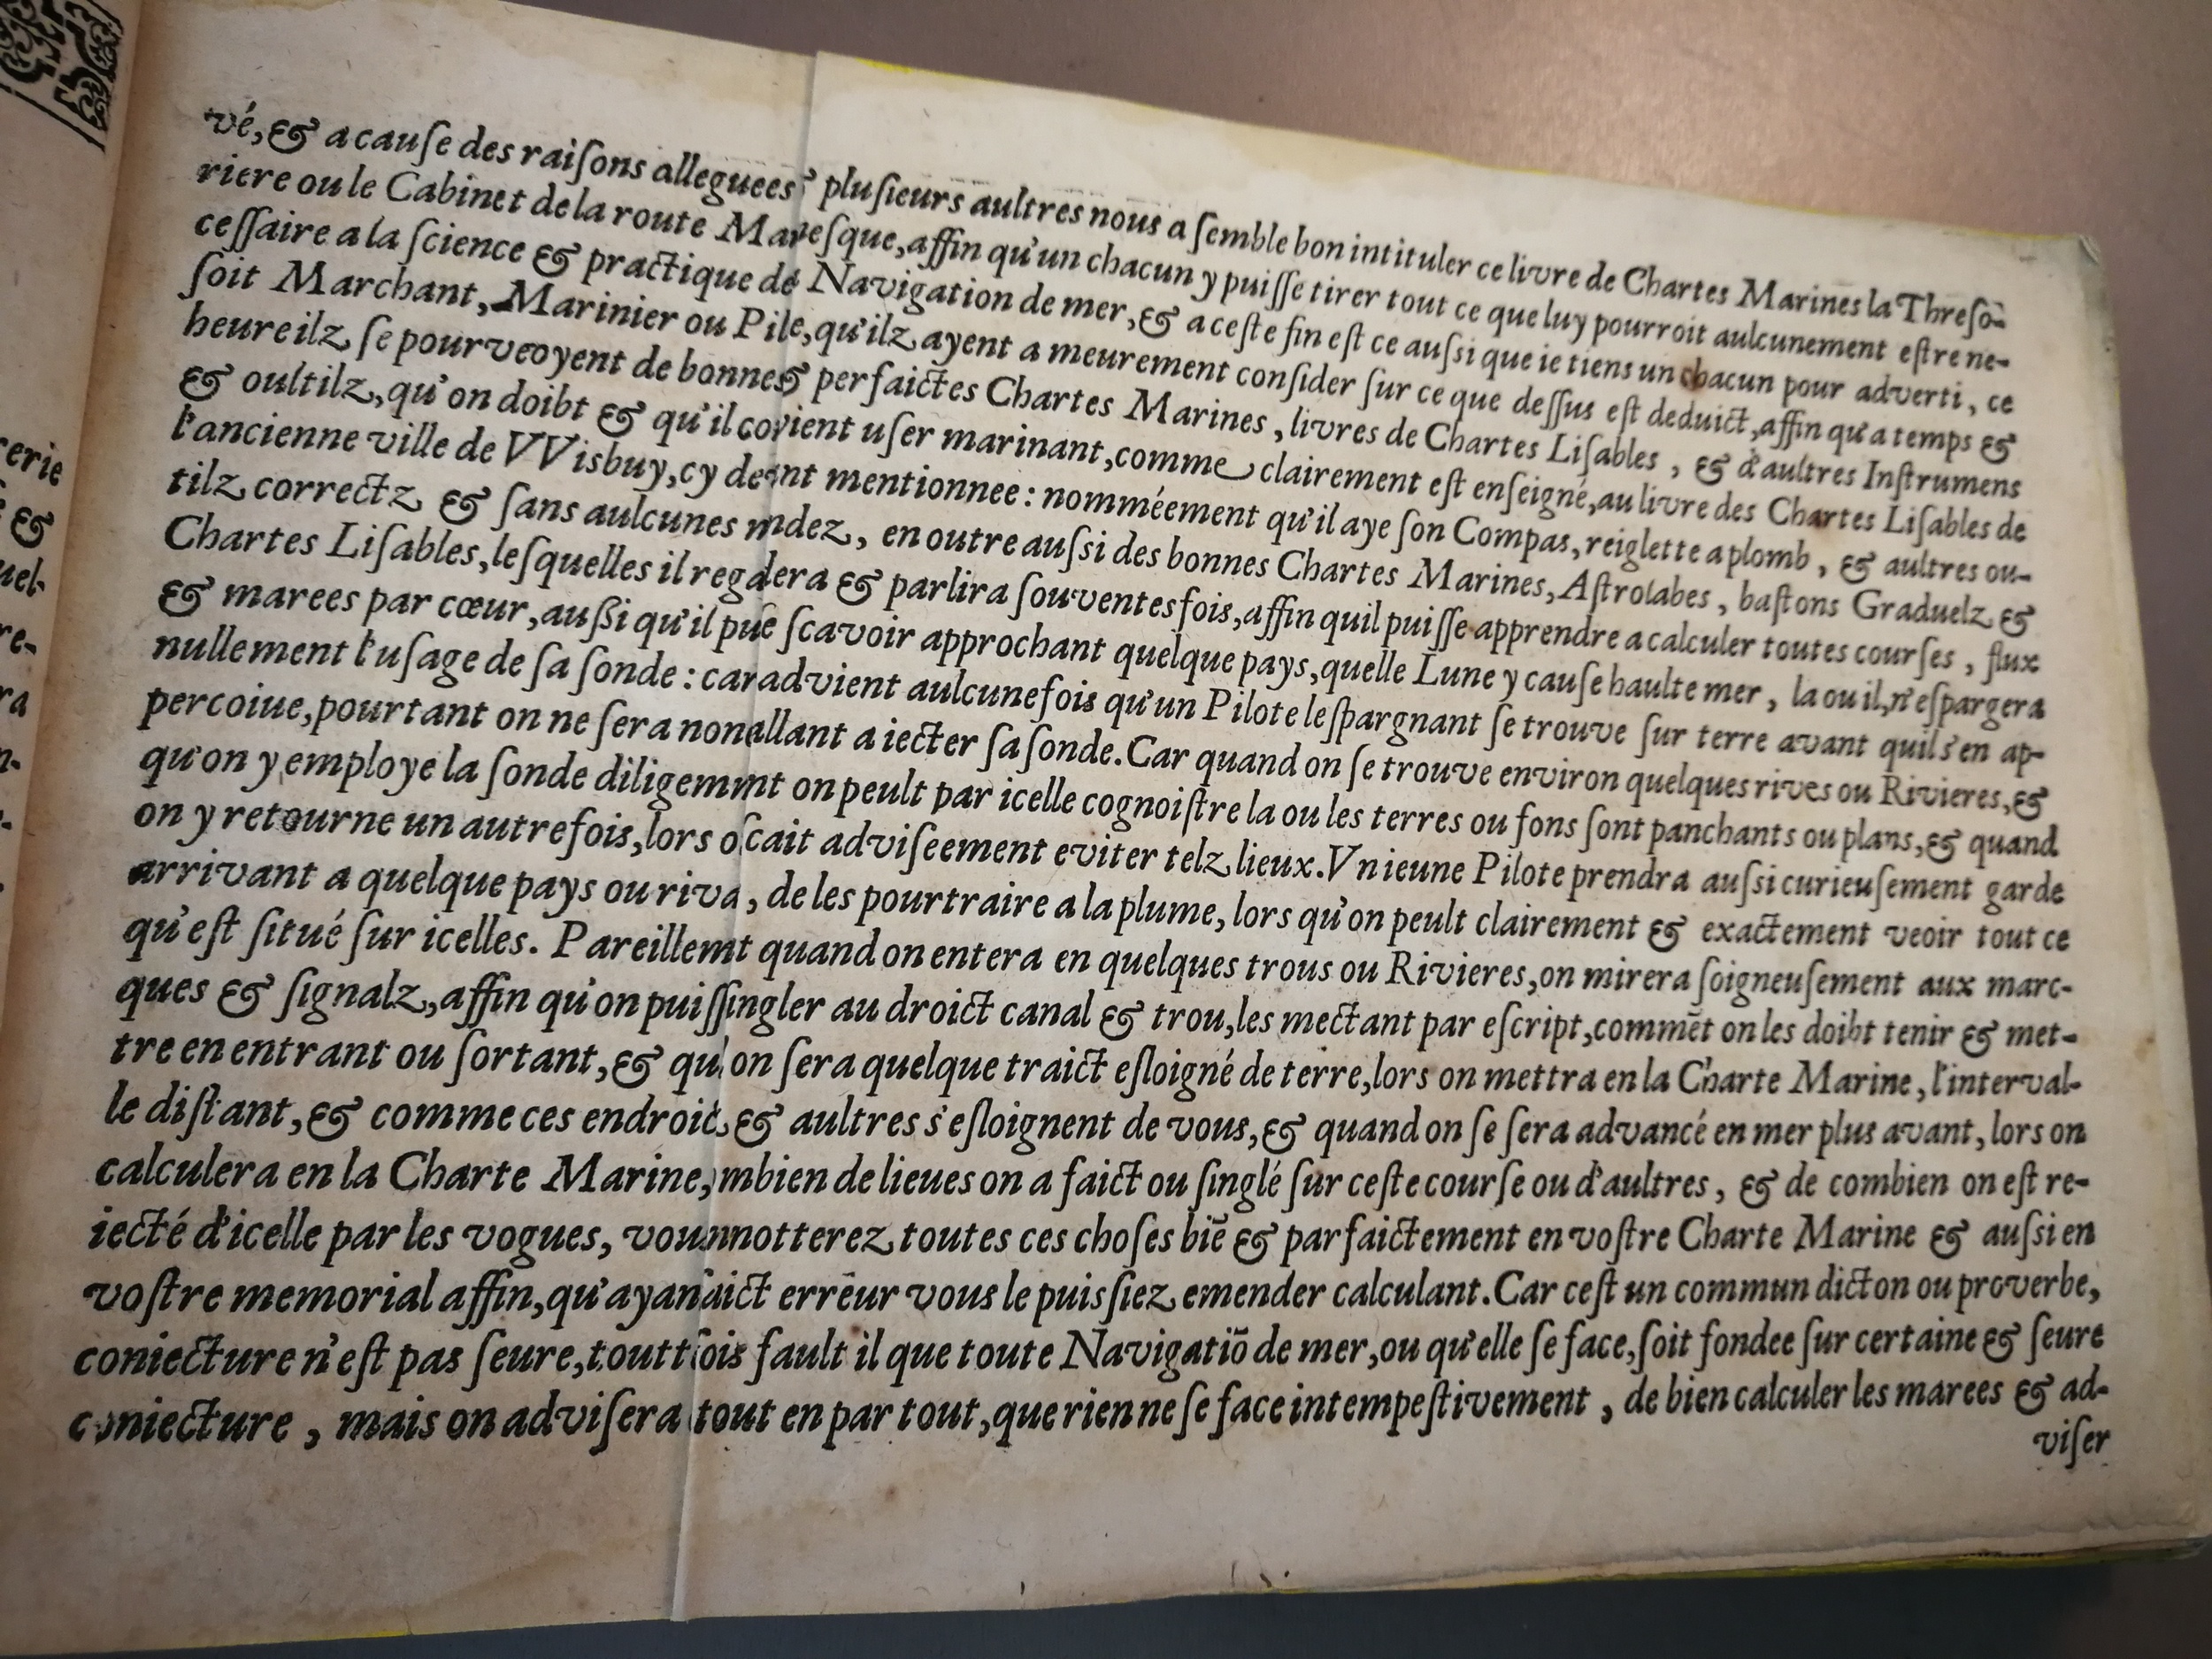 vé, & a cause des raiſons alleguees & pluſieurs aultres nous a ſemble bon intituler ce livre de Chartes Marines la Threſo-
riere ou le Cabinet de la route Mareſque, affin qu'un chacun y puiſſe tirer tout ce que luy pourroit aulcunement eſtre ne-
ceſſaire a la ſcience & practique de Navigation de mer, & a ceſte fin eſt ce auſsi que ie tiens un chacun pour adverti, ce
ſoit Marchant, Marinier ou Pile, qu'ilz ayent a meurement conſider ſur ce que deſſus eſt deduict, affin qu'a temps &
heure ilz ſe pourveoyent de bonnes & perfaictes Chartes Marines, livres de Chartes Liſables, & d'aultres Inſtrumens
& oultilz, qu'on doibt & qu'il covient uſer marinant, comme clairement eſt enſeigné, au livre des Chartes Liſables de
l'ancienne ville de VVisbuy, cy de nt mentionnee: nomméement qu'il aye ſon Compas, reiglette a plomb, & aultres ou-
tilz correctz & ſans aulcunes mdez, en outre auſsi des bonnes Chartes Marines, Aſtrolabes, baſtons Graduelz &
Chartes Liſables, leſquelles il regadera & parlira ſouventesfois, affin quil puiſſe apprendre a calculer toutes courſes, flux
& marees par cœur, auſsi qu'il puſe ſcavoir approchant quelque pays, quelle Lune y cauſe haulte mer, la ou il, n'eſpargera
nullement l'uſage de ſa ſonde: car advient aulcunefois qu'un Pilote leſpargnant ſe trouve ſur terre avant quil s'en ap-
percoiue, pourtant on ne ſera nonallant a iecter ſa ſonde. Car quand on ſe trouve environ quelques rives ou Rivieres, &
qu'on y employe la ſonde diligemmt on peult par icelle cognoiſtre la ou les terres ou fons ſont panchants ou plans, & quand
on y retourne un autrefois, lors o ſcait adviſeement eviter telz lieux. Vn ieune Pilote prendra auſsi curieuſement garde
arrivant a quelque pays ou riva, de les pourtraire a la plume, lors qu'on peult clairement & exactement veoir tout ce
qu'eſt ſitué ſur icelles. Pareillemt quand on entera en quelques trous ou Rivieres, on mirera ſoigneuſement aux marc-
ques & ſignalz, affin qu'on puiſſingler au droict canal & trou, les mectant par eſcript, commēt on les doibt tenir & met-
tre en entrant ou ſortant, & qu on ſera quelque traict eſloigné de terre, lors on mettra en la Charte Marine, l'interval-
le diſtant, & comme ces endroic, & aultres s'eſloignent de vous, & quand on ſe ſera advancé en mer plus avant, lors on
calculera en la Charte Marine, mbien de lieues on a faict ou ſinglé ſur ceſte courſe ou d'aultres, & de combien on eſt re-
iecté d'icelle par les vogues, vounnotterez toutes ces choſes biē & parfaictement en voſtre Charte Marine & auſsi en
voſtre memorial affin, qu'ayan aict erreur vous le puisſiez emender calculant. Car ceſt un commun dicton ou proverbe,
coniecture n'eſt pas ſeure, touttſois fault il que toute Navigatiō de mer, ou qu'elle ſe face, ſoit fondee ſur certaine & ſeure
coniecture, mais on adviſera tout en par tout, que rien ne ſe face intempeſtivement, de bien calculer les marees & ad-
viſer
erie
&
uel-
re-
ra
n-